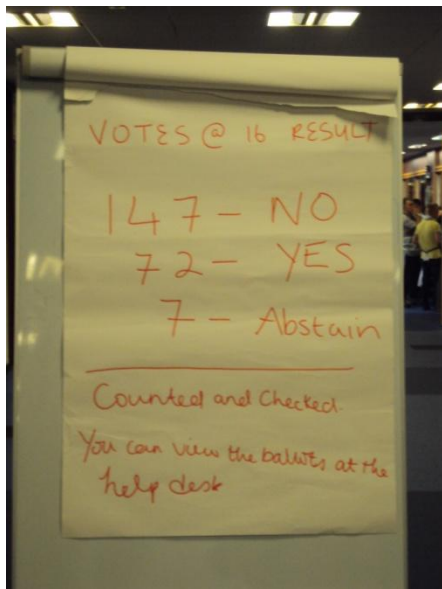 VOTES @ 16 RESULT
147 - NO
72 - YES
7 - Abstain
Counted and Checked.
You can view the ballots at the
help desk